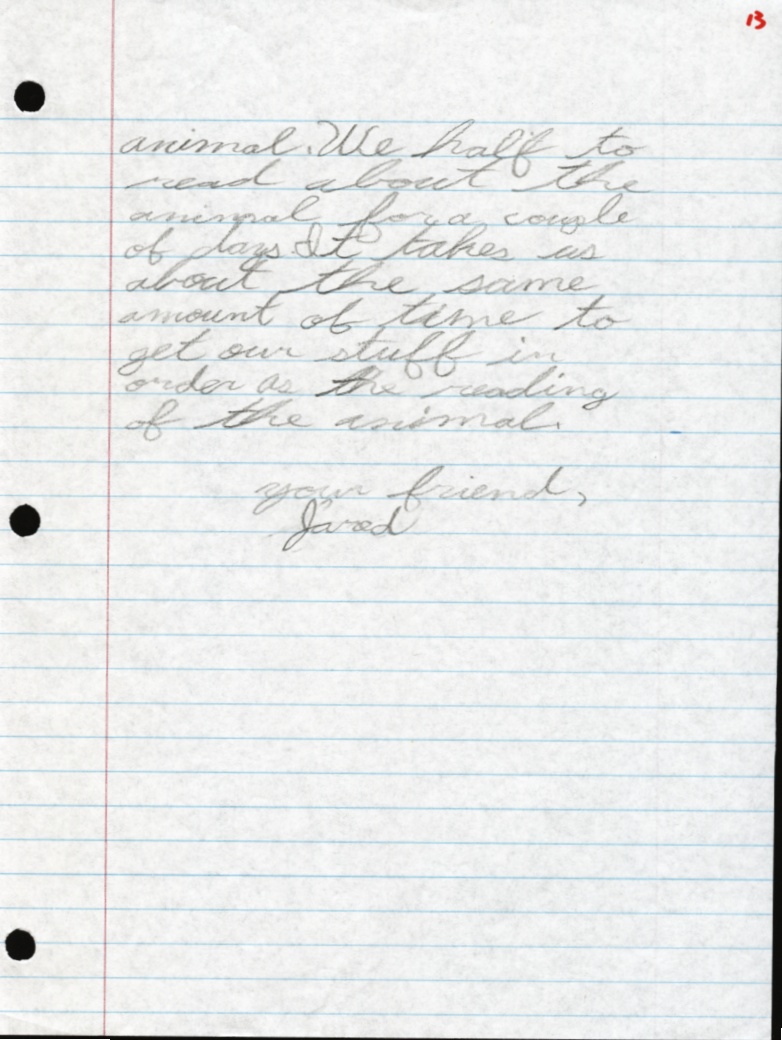 13
animal. We half to
read about the
animal for a couple
of days It takes us
about the same
amount of time to
get our stuff in
order as the reading
of the animal.
your friend,
Jared